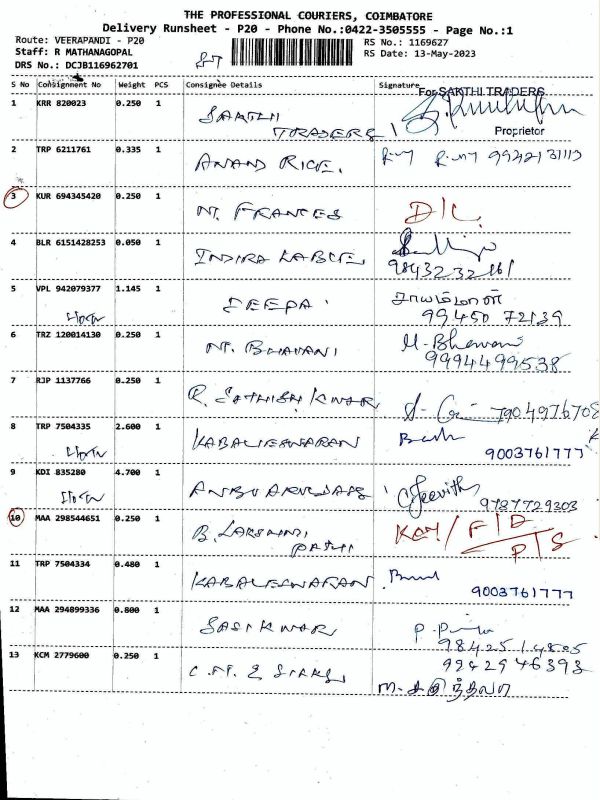 THE PROFESSIONAL COURIERS, COIMBATORE
Delivery Runsheet - P20 - Phone No.:0422-3505555 - Page No.:1
Route: VEERAPANDI - P20 RS No.: 1169627
Staff: R MATHANAGOPAL RS Date: 13-May-2023
DRS No.: DCJB116962701
S No Consignment No Weight PCS Consignee Details Signature
For SAKTHI TRADERS
1 KRR 820023 0.250 1 SAKTHI
TRADERS
Proprietor
2 TRP 6211761 0.335 1 ANAND RICE. 9942131113
3 KUR 694345420 0.250 1 M. FRANCES D/L
4 BLR 6151428253 0.050 1 INDIRA LABLE
9843232161
5 VPL 942079377 1.145 1 DEEPA சாயம்மாள்
99450 72139
6 TRZ 120014130 0.250 1 M. BHAVANI M. Bhavani
9994499538
7 RJP 1137766 0.250 1 R. SATHISH KUMAR 7904976708
8 TRP 7504335 2.600 1 KABALIESWARAN
9003761777
9 KDI 835280 4.700 1 Jeevitha
9787729303
10 MAA 298544651 0.250 1 B. LAKSHMI
PATHI
F/D
P/S
11 TRP 7504334 0.480 1 KABALIESWARAN
9003761777
12 MAA 294899336 0.800 1 SASIKUMAR
98425 14805
13 KCM 2779600 0.250 1 9242946393